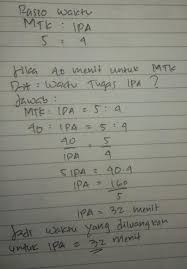 Rasio waktu
MTK : IPA
5 : 4
Jika 40 menit untuk MTK
Dit : Waktu Tugas IPA ?
Jawab :
MTK : IPA = 5 : 4
40 : IPA = 5 : 4
40/IPA = 5/4
5 IPA = 40.4
IPA = 160/5
IPA = 32 menit
Jadi waktu yang diluangkan
untuk IPA = 32 menit